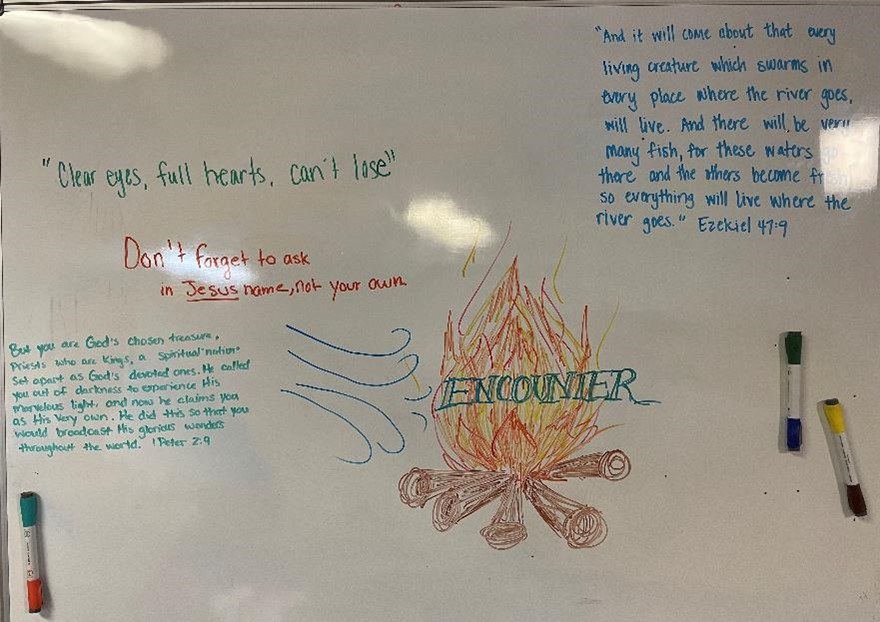 "And it will come about that every
living creature which swarms in
every place where the river goes,
will live. And there will be very
many fish, for these waters go
there and the others become fresh
so everything will live where the
river goes." Ezekiel 47:9
"Clear eyes, full hearts, can't lose"
Don't forget to ask
in Jesus name, not your own
But you are God's chosen treasure,
Priests who are Kings, a spiritual "nation"
set apart as God's devoted ones. He called
you out of darkness to experience His
marvelous light, and now he claims you
as His very own. He did this so that you
would broadcast His glorious wonders
throughout the world. 1 Peter 2:9
ENCOUNTER